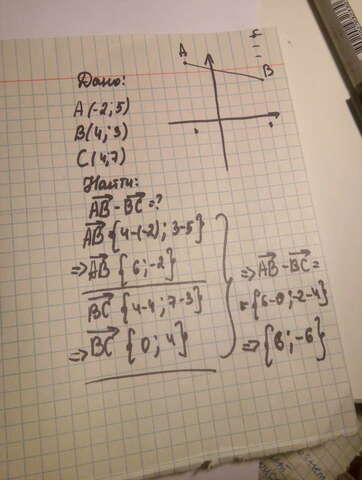 A
B
Дано:
A(-2;5)
B(4;3)
C(4;7)
Найти:
AB - BC = ?
AB = {4-(-2); 3-5}
=> AB {6;-2}
BC {4-4; 7-3}
=> BC {0; 4}
=> AB - BC =
= {6-0; -2-4}
=> {6; -6}